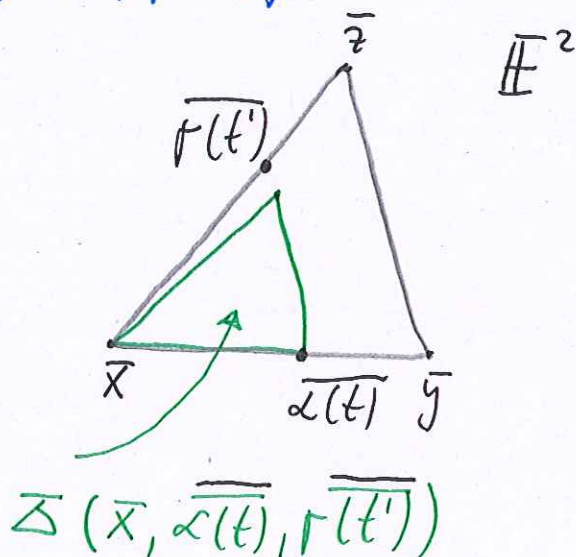 z̅
𝔼²
\overline{γ(t')}
x̅
\overline{α(t)}
y̅
Δ̅ (x̅, \overline{α(t)}, \overline{γ(t')})